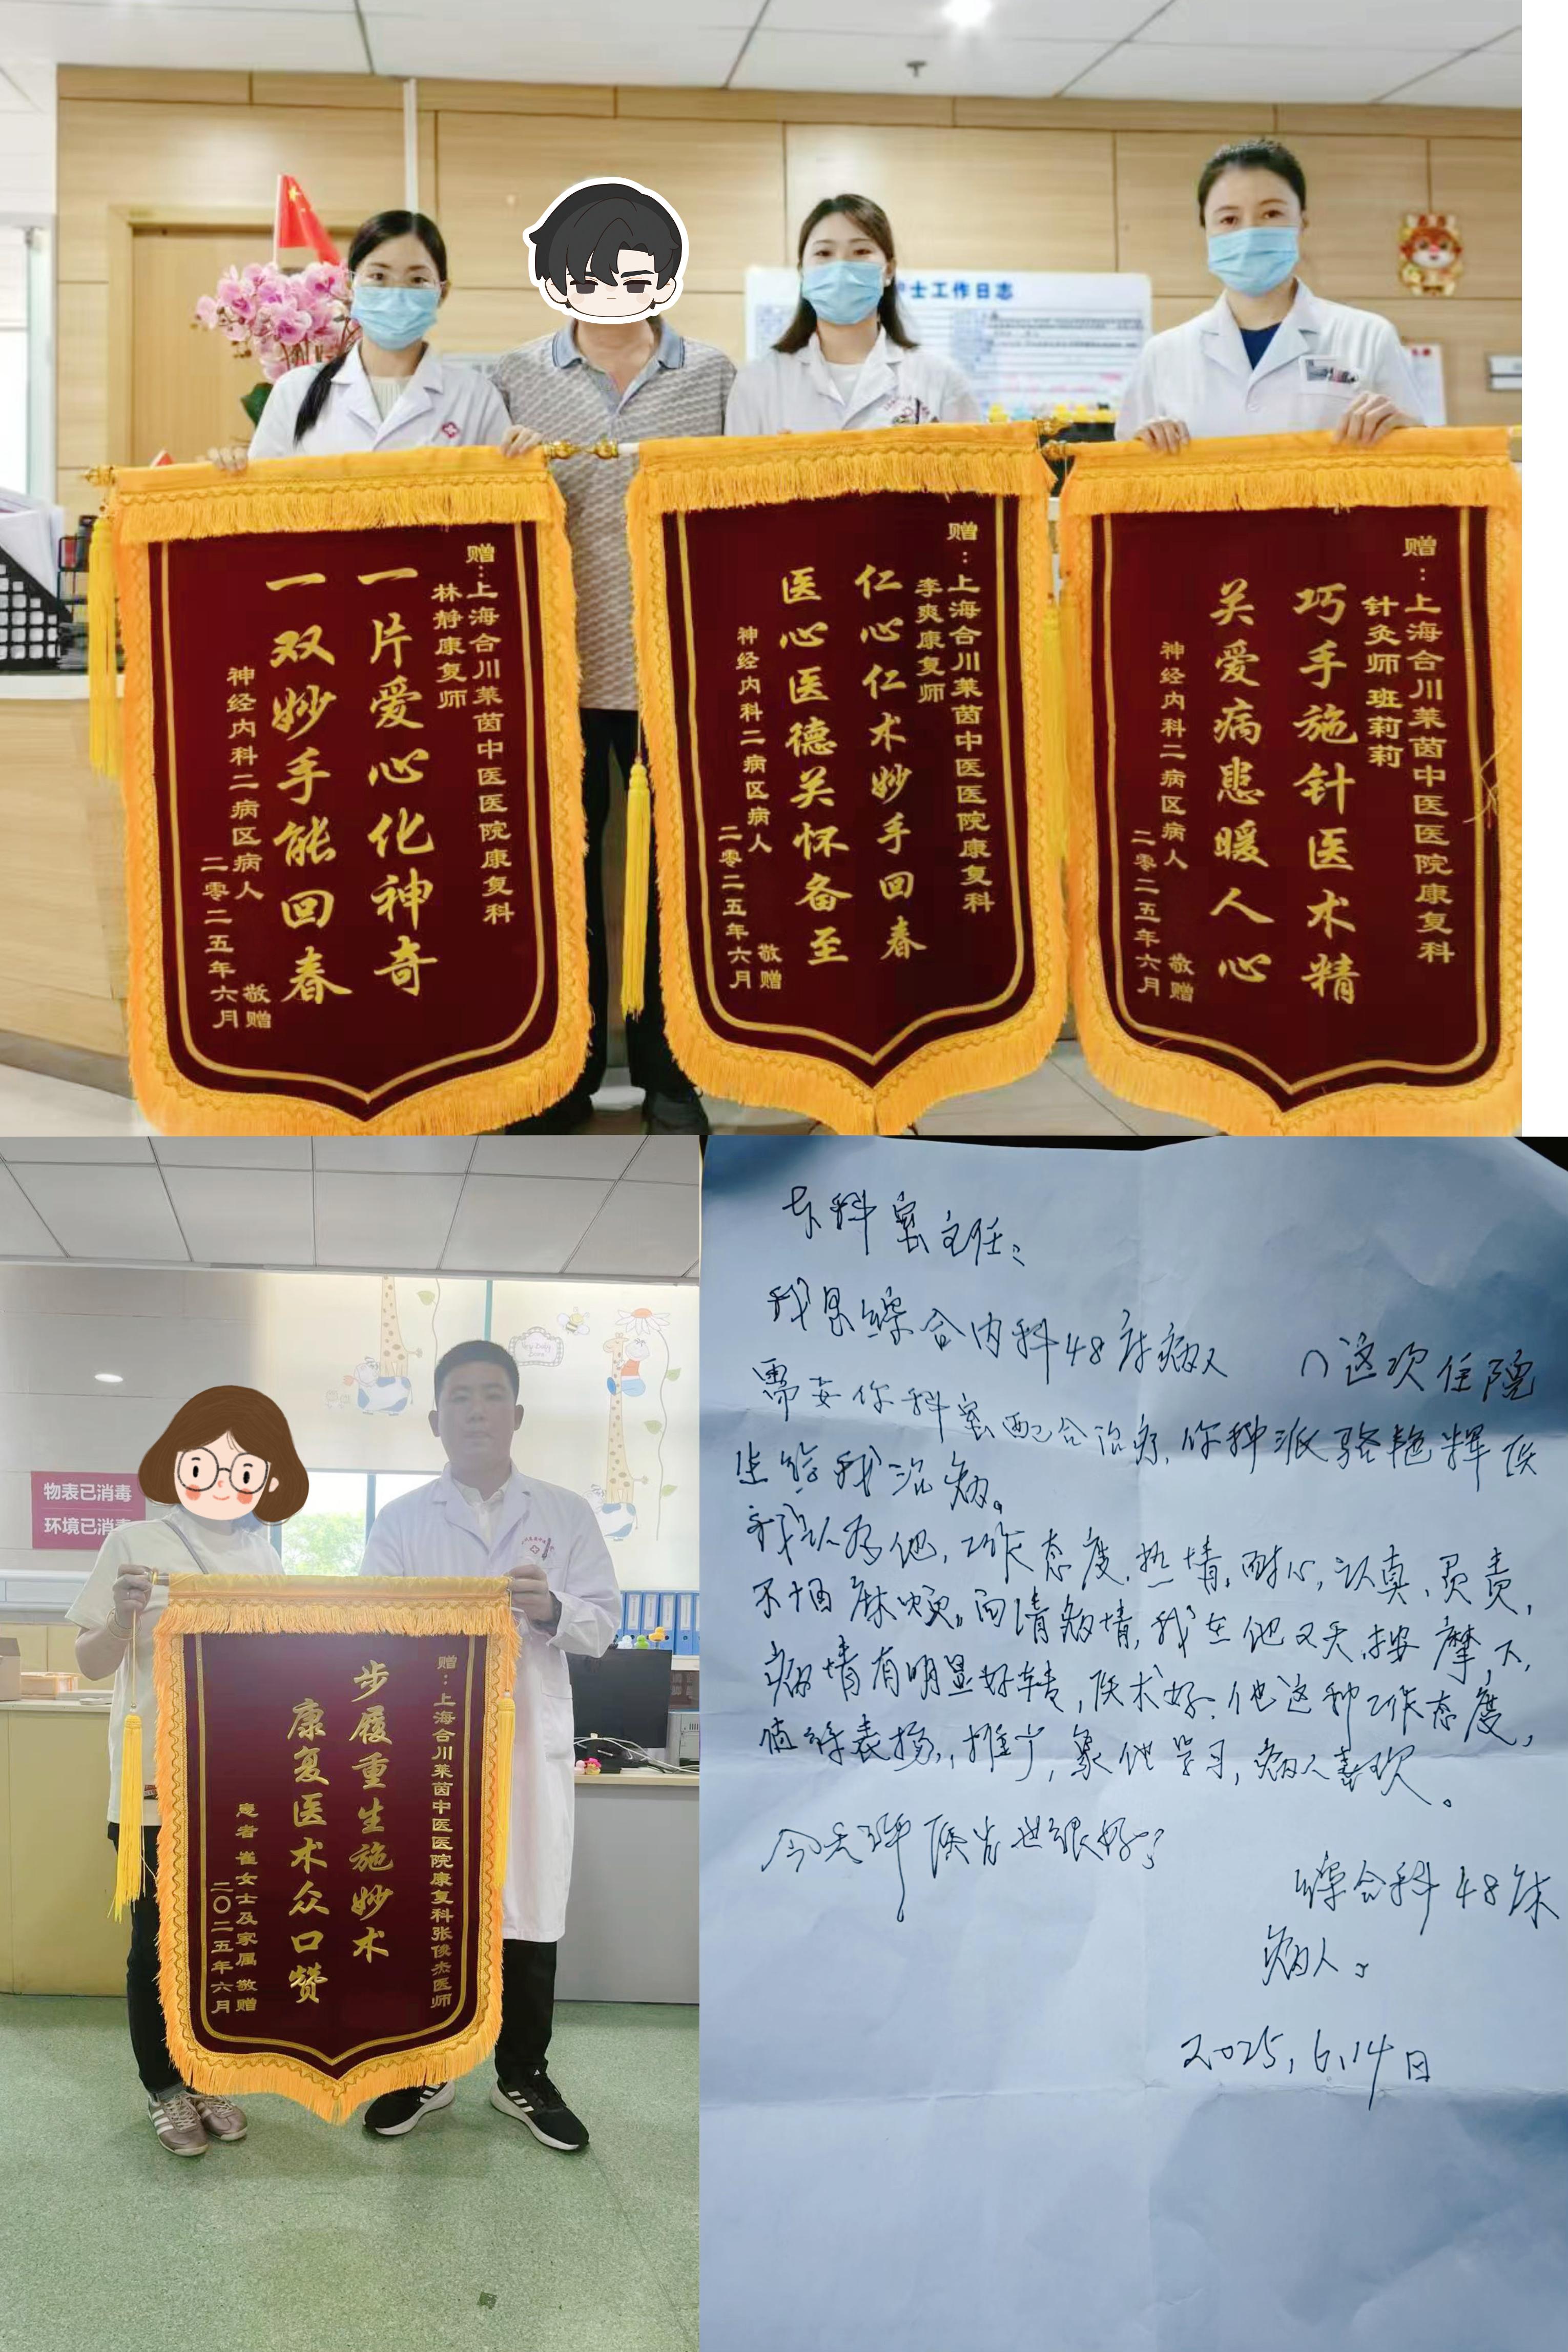 士工作日志
赠：上海合川莱茵中医医院康复科
林静康复师
一片爱心化神奇
一双妙手能回春
神经内科二病区病人
敬赠
二零二五年六月
赠：上海合川莱茵中医医院康复科
李爽康复师
仁心仁术妙手回春
医心医德关怀备至
神经内科二病区病人
敬赠
二零二五年六月
赠：上海合川莱茵中医医院康复科
针灸师班莉莉
巧手施针医术精
关爱病患暖人心
神经内科二病区病人
敬赠
二零二五年六月
物表已消毒
环境已消毒
赠：上海合川莱茵中医医院康复科张俊杰医师
步履重生施妙术
康复医术众口赞
患者 崔女士及家属 敬赠
二〇二五年六月
科室主任：
我是综合内科48床病人 这次住院
需要你科室配合治疗，你种派骆艳辉医
生给我治病。
我认为他，工作态度，热情，耐心，认真，负责，
不怕麻烦。问清病情，我在他又天按摩下，
病情有明显好转，医术好，他这种工作态度，
值得表扬，推广，象他学习，病人喜欢。
今天 医生也很好
综合科48床
病人。
2025，6，14日